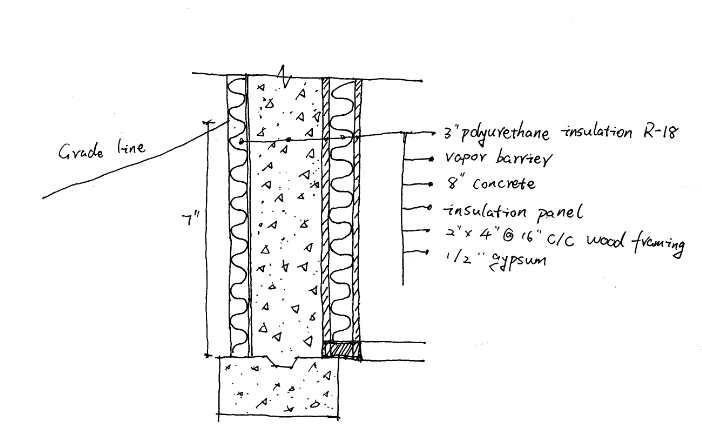 Grade line
7"
3" polyurethane insulation R-18
vapor barrier
8" concrete
insulation panel
2" x 4" @ 16" C/C wood framing
1/2" gypsum